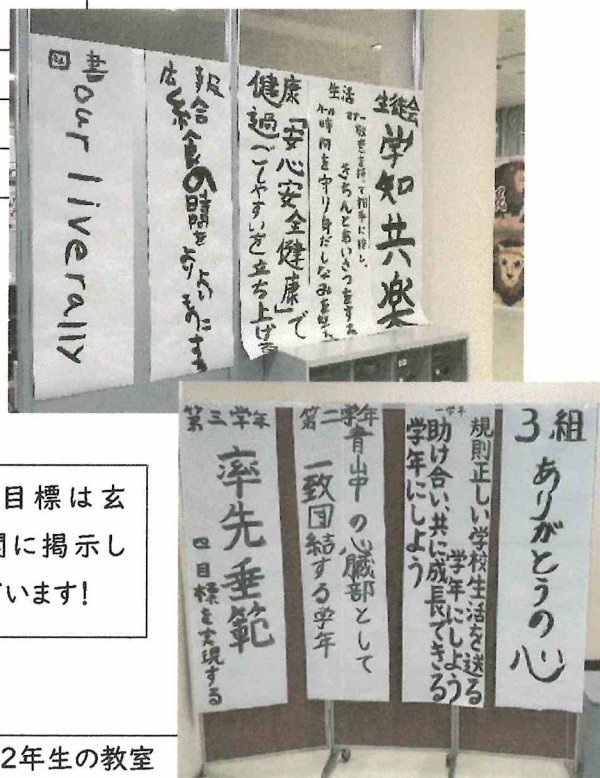 生徒会
学知共楽
生活
マナー 敬意を持って相手に接し、
きちんとあいさつをする
ルール 時間を守り身だしなみを整え
健康「安心安全健康」で
過ごしやすい を立ち上げる
広報
給食の時間を
よりよい
ものにする
図書
our liverally
3組
ありがとうの心
規則正しい学校生活を送る
学年にしよう
助け合い、共に成長できる
学年にしよう
第二学年
青山中の心臓部として
一致団結する学年
第三学年
率先垂範
目標を実現する
目標は玄
関に掲示し
います!
2年生の教室